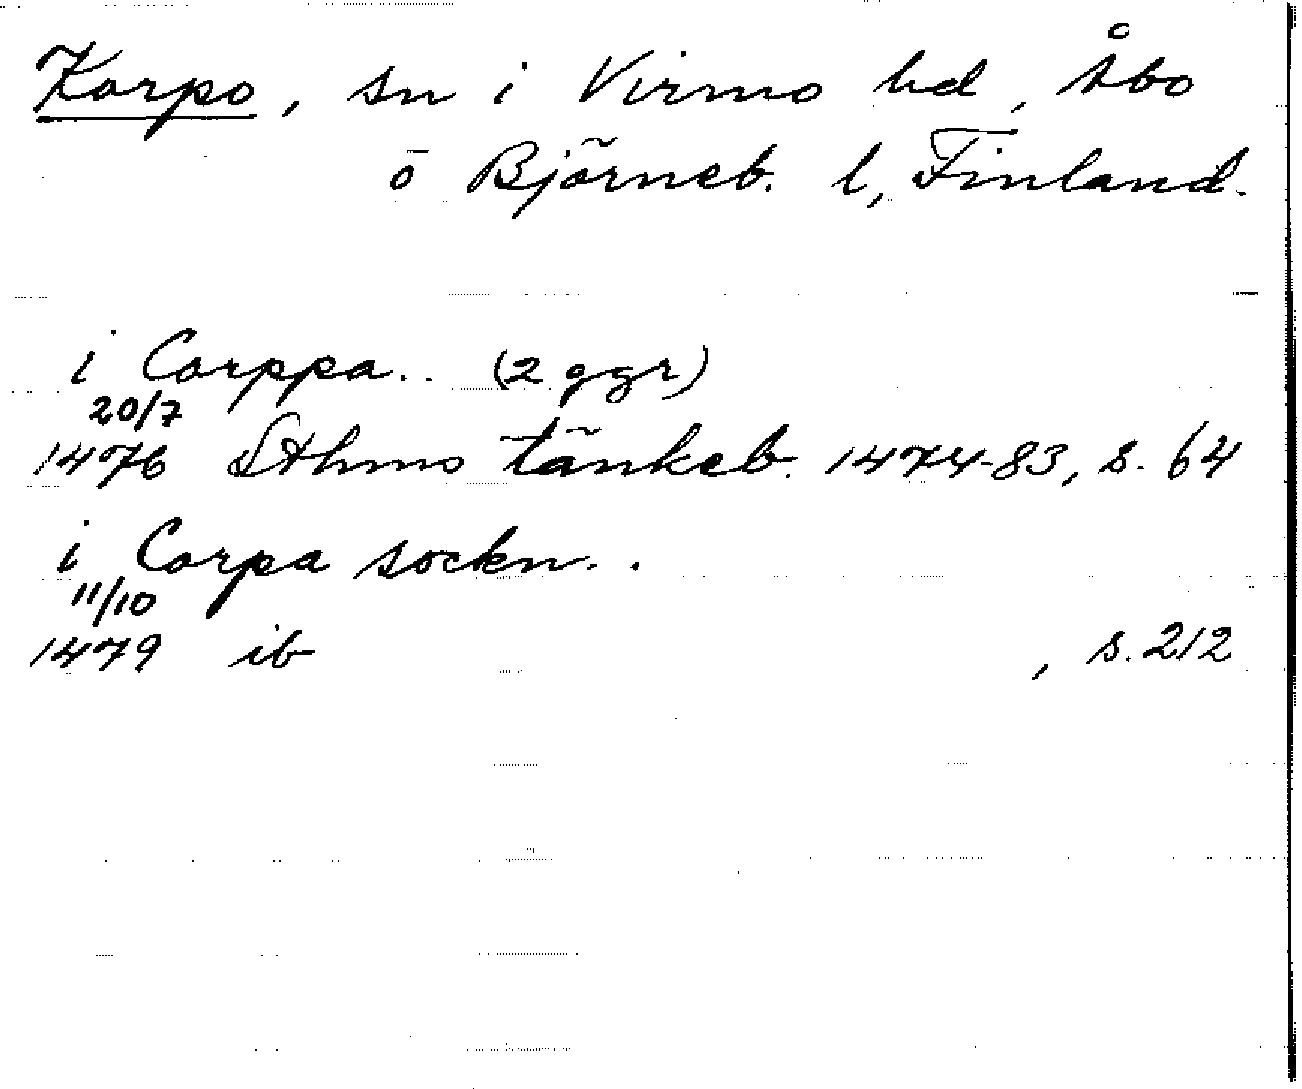 Korpo, sn i Virmo hd, Åbo
ō Björneb. l, Finland.
i Corppa.. (2 ggr)
20/7
1476 Sthms tänkeb. 1474-83, s. 64
i Corpa sockn..
11/10
1479 ib , s. 212